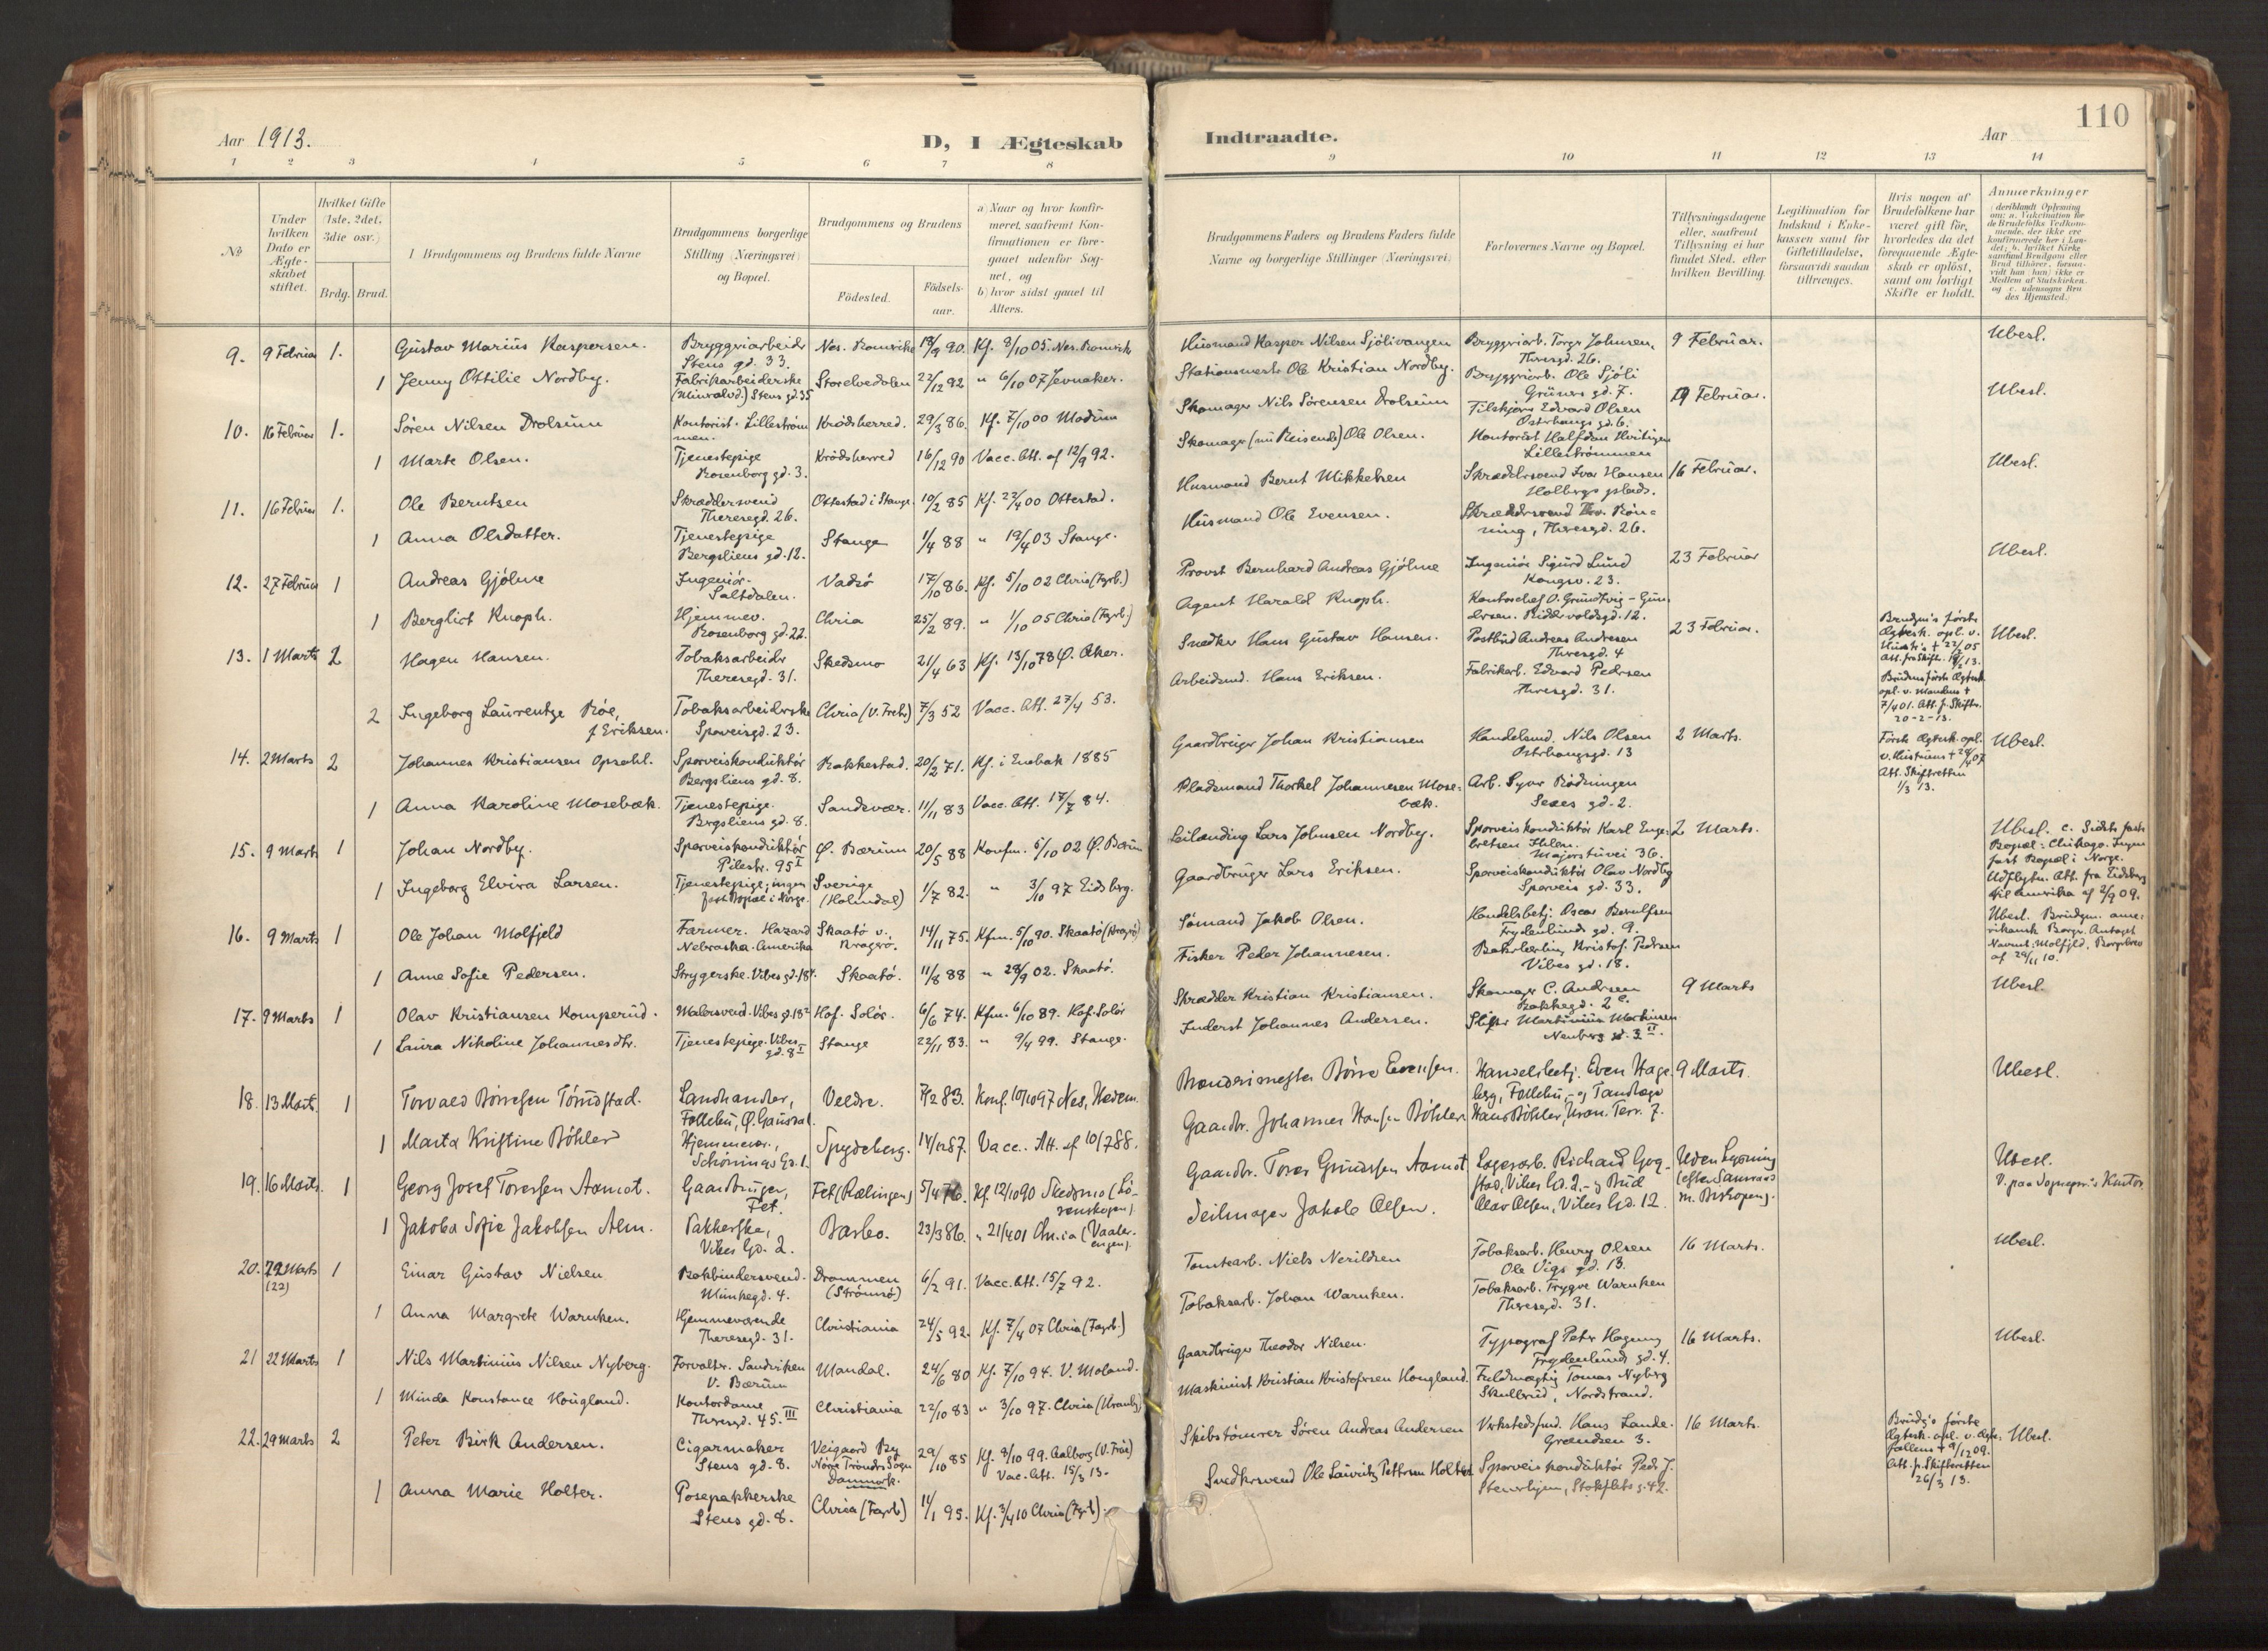 110
Aar 1913.
D, I Ægteskab
Indtraadte.
Aar
1 2 3 4 5 6 7 8 9 10 11 12 13 14
No
Under
hvilken
Dato er
Ægte-
skabet
stiftet.
Hvilket Gifte
(1ste, 2det,
3die osv.)
Brdg. Brud.
I Brudgommens og Brudens fulde Navne
Brudgommens borgerlige
Stilling (Næringsvei)
og Bopæl.
Brudgommens og Brudens
Fødested.
Fødsels-
aar.
a) Naar og hvor konfir-
meret, saafremt Kon-
firmationen er fore-
gaaet udenfor Sog-
net, og
b) hvor sidst gaaet til
Alters.
Brudgommens Faders og Brudens Faders fulde
Navne og borgerlige Stillinger (Næringsvei)
Forlovernes Navne og Bopæl.
Tillysningsdagene
eller, saafremt
Tillysning ei har
fundet Sted, efter
hvilken Bevilling.
Legitimation for
Indskud i Enke-
kassen samt for
Giftetilladelse,
forsaavidt saadan
tiltrænges.
Hvis nogen af
Brudefolkene har
været gift før,
hvorledes da det
foregaaende Ægte-
skab er opløst,
samt om lovligt
Skifte er holdt.
Anmærkninger
9. 9 Februar 1. Gustav Marius Kaspersen. Bryggeriarbeider Nes. Romerike 18/9 90. Kf. 8/10 05. Nes. Romerike
Stens gd. 33.
Husmand Kasper Nilsen Sjölivangen Bryggeriarb. Torger Johnsen, 9 Februar. Ubesl.
Theresgd. 26.
1 Jenny Ottilie Nordby. Fabrikarbeiderske Storelvedalen 22/12 92 " 6/10 07 Jevnaker.
(Mineralvd.) Stens gd. 35
Stationsmester Ole Kristian Nordby. Bryggeriarb. Ole Sjöli
Grüners gd. 7.
10. 16 Februar 1. Søren Nilsen Drolsum Kontorist. Lillestrøm- Krødsherred. 29/3 86. Kf. 7/10 00 Modum
men.
Skomager Nils Sörensen Drolsum Edvard Olsen 9 Februar. Ubesl.
Østerhaugs gd. 6.
1 Marte Olsen. Tjenestepige Krödsherred 16/12 90 Vacc. Att. af 12/9 92.
Rosenborg gd. 3.
Skomager (nu Reisende) Ole Olsen. Kontorist Halfdan
Lillestrømmen
11. 16 Februar 1. Ole Berntsen Skræddersvend Ottestad i Stange. 10/2 85 Kf. 22/4 00 Ottestad.
Theresegd. 26.
Husmand Bernt Mikkelsen Skræddersvend Ivar Hansen 16 Februar. Ubesl.
Holbergs plads.
1 Anna Olsdatter. Tjenestepige Stange 1/4 88 " 19/4 03 Stange.
Bergsliens gd. 12.
Husmand Ole Evensen. Skræddersvend Thv. Rön-
ning, Theresgd. 26.
12. 27 Februar 1 Andreas Gjølme Ingeniör. Vadsö 17/10 86. Kf. 5/10 02 Chria (Fagrb.)
Saltdalen.
Provst Bernhard Andreas Gjölme Ingeniör Sigurd Lund 23 Februar Ubesl.
Kongsv. 23.
1 Bergliot Knoph. Hjemmev. Chria 25/2 89. " 1/10 05 Chria (Fagrb.)
Rosenborg gd. 22.
Agent Harald Knoph. Kontorchef O. Grundtvig-Gun-
dersen. Riddervoldsgd. 12.
13. 1 Marts 2 Hagen Hansen. Tobaksarbeider Skedsmo 21/4 63 Kf. 13/10 78 Ø. Aker.
Theresegd. 31.
Snedker Hans Gustav Hansen. Postbud Andreas Andresen 23 Februar. Ubesl.
Theresgd. 4
Brudgm's første
Ægtesk. opl. v.
Hustr's † 22/ 05
Att. fra Skift.
2 Ingeborg Laurentze Röe, Tobaksarbeiderske Chria (V. Frels.) 7/3 52 Vacc. Att. 27/4 53.
f. Eriksen. Sporveisgd. 23.
Arbeidsmd. Hans Eriksen. Fabrikarb. Edvard Pedersen
Theresgd. 31.
Brudens første Ægtesk.
opl. v. Mandens †
7/4 01. Att. f. Skiftr.
20-2-13.
14. 2 Marts 2 Johannes Kristiansen Opsahl. Sporveiskonduktör Rakkestad. 20/2 71. Kf. i Enebak 1885
Bergsliens gd. 8.
Gaardbruger Johan Kristiansen Handelsmd. Nils Olsen 2 Marts. Ubesl.
Østerhaugsgd. 13
Første Ægtesk. opl.
v. Hustruens † 24/ 07
Att. Skifteretten
1/3 13.
1 Anna Karoline Mosebæk. Tjenestepige. Sandsvær. 11/11 83 Vacc. Att. 17/7 84.
Bergsliens gd. 8.
Pladsmand Thorkel Johannesen Mose- Arb. Syver Rödningen
bæk. Sexes gd. 2.
15. 9 Marts 1 Johan Nordby. Sporveiskonduktör Ø. Bærum 20/5 88 Konfm. 5/10 02 Ø. Bærum
Pilestr. 95 I
Leilænding Lars Johnsen Nordby. Sporveiskonduktör Karl Enge- 2 Marts.
bretsen
Majorstuvei 36.
Ubesl. c. Sidste faste
Bopæl: Chikago. Ingen
fast Bopæl i Norge.
Udflytn. Att. fra Eidsberg
til Amerika af 2/9 09.
1 Ingeborg Elvira Larsen. Tjenestepige, ingen Sverige 1/7 82. " 3/10 97 Eidsberg.
fast Bopæl i Norge. (Holmdal)
Gaardbruger Lars Eriksen. Sporveiskonduktör Olav Nordby
Sporveis gd. 33.
16. 9 Marts 1 Ole Johan Molfjeld Farmer. Hazard Skaatö v. 14/11 75. Kfm. 5/10 90. Skaatö (Kragerö)
Nebraska. Amerika Kragerø.
Sömand Jakob Olsen. Handelsbetj. Oscar
Frydenlunds gd. 9.
Ubesl. Brudgm. ame-
rikansk Borger. Antaget
Navnet: Molfjeld, Borgerbrev
af 29/11 10.
1 Anne Sofie Pedersen. Strygerske. Vibes gd. 18 Skaatö. 11/8 88 " 28/9 02. Skaatö.
Fisker Peder Johannesen. Kristof. Pedersen
Vibes gd. 18.
17. 9 Marts 1 Olav Kristiansen Komperud. Malersvend. Vibes gd. 18 Hof. Solör. 6/6 74. Kfm. 6/10 89. Hof. Solör
Skrædder Kristian Kristiansen. Skomager C. Andersen 9 Marts Ubesl.
Bakkegd. 2 C.
1 Laura Nikoline Johannesdtr. Tjenestepige. Vibes Stange 22/11 83. " 9/4 99. Stange.
gd. 8 I
Inderst Johannes Andersen. Sliper Martinius Martinsen
Neubergs gd. 3 II.
18. 13 Marts 1 Torvald Börresen Tömdstad. Landhandler, Veldre. 7/2 83. Konf. 10/10 97 Nes, Hedem.
Follebu, Ø. Gausdal.
Brænderimester Börre Evensen. Handelsbetj. Even Hage- 9 Marts. Ubesl.
berg, Follebu, og Tandlæge
1 Marta Kristine Böhler Hjemmev., Spydeberg. 14/12 87. Vacc. Att. af 10/7 88.
Schönings Gd. 1.
Gaardbr. Johannes Hansen Böhler Hans Böhler, Uran. Terr. 7.
19. 16 Marts. 1 Georg Josef Toresen Aamot. Gaardbruger, Fet (Rælingen) 5/4 76. Kf. 12/10 90 Skedsmo (Lö-
Fet. renskogen).
Gaardbr. Tores Gundersen Aamot Lagerarb. Richard Gog- Uden Lysning Ubesl.
stad, Vibes Gd. 2, og Bud (efter Samraad V. paa Sognepr's Kontor
m. Biskopen).
1 Jakoba Sofie Jakobsen Alm. Pakkerske, Barbo. 23/3 86. " 21/4 01 Chr.ia (Vaaler-
Vibes Gd. 2. engen).
Seilmager Jakob Olsen. Olav Olsen, Vibes Gd. 12.
20. 22 Marts 1 Einar Gustav Nielsen Bokbindersvend. Drammen 6/2 91. Vacc. Att. 15/7 92.
(22) Munkegd. 4. (Strömsö)
Tomtearb. Niels Nerildsen Tobaksarb. Henry Olsen 16 Marts. Ubesl.
Ole Vigs gd. 13.
1 Anna Margrete Warnken. Hjemmeværende Christiania 24/5 92. Kf. 7/4 07 Chria (Fagrb.)
Theresegd. 31.
Tobaksarb. Johan Warnken. Tobaksarb. Trygve Warnken
Theresegd. 31.
21 22 Marts 1 Nils Martinius Nilsen Nyberg. Forvalter. Sandviken Mandal. 24/6 80 Kf. 7/10 94. V. Moland.
V. Bærum
Gaardbruger Theodor Nilsen. Typograf Peter Hagung 16 Marts. Ubesl.
Frydenlunds gd. 4.
1 Minda Konstance Hougland. Kontordame Christiania 22/10 83 " 3/10 97. Chria (Uranbg)
Theresgd. 45. III
Maskinist Kristian Kristofersen Hougland. Fuldmægtig Tomas Nyberg
Skulbrud, Nordstrand.
22. 29 Marts 2 Peter Birk Andersen. Cigarmaker Veigaard By 29/10 85 Kf. 8/10 99. Aalborg (V. Frue)
Stens gd. 8. Nørre Tranders Sogn Vac. Att. 15/3 13.
Danmark.
Skibstömrer Sören Andreas Andersen Verkstedsfmd. Hans Lande. 16 Marts. Ubesl.
Grændsen 3.
Brudg's første
Ægtesk. opl. v. Ægte-
fællens † 9/12 09.
Att. f. Skifteretten
26/3 13.
1 Anna Marie Holter. Posepakkerske Chria (Fagrb) 14/1 95. Kf. 3/4 10 Chria (Fgrb).
Stens gd. 8.
Snedkersvend Ole Lauritz Pettersen Holter Sporveiskonduktör Peder J.
Stensbyen, Stokflets g. 42.